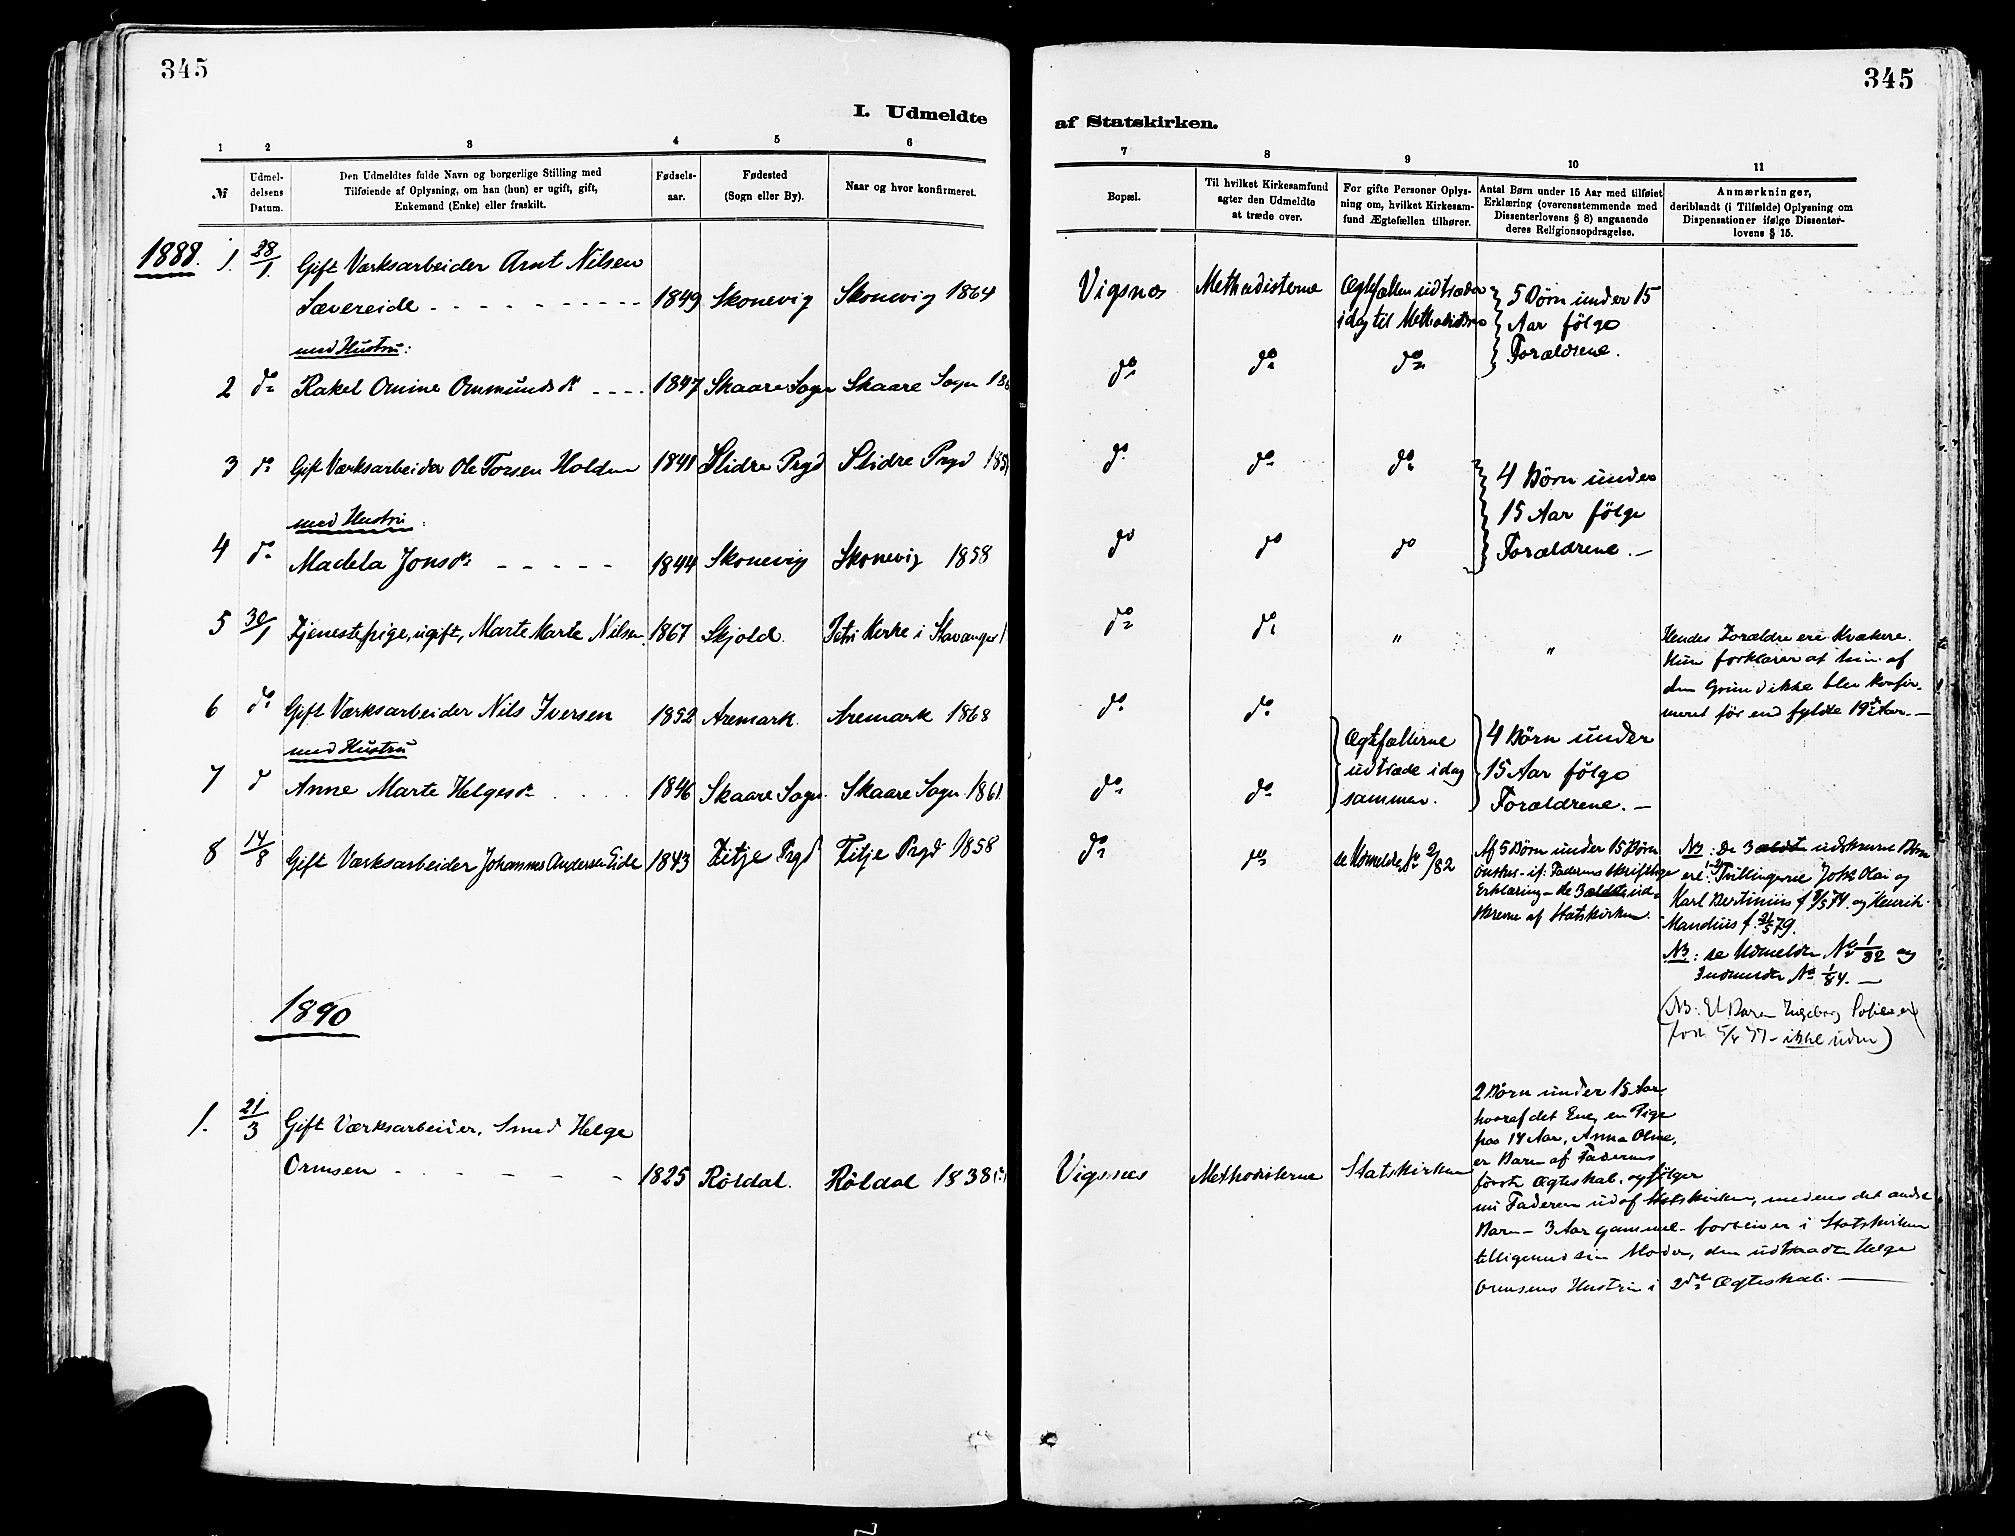 345
345
I. Udmeldte
af Statskirken.
1 2 3 4 5 6
7 8 9 10 11
№
Udmel-
delsens
Datum.
Den Udmeldtes fulde Navn og borgerlige Stilling med
Tilføiende af Oplysning, om han (hun) er ugift, gift,
Enkemand (Enke) eller fraskilt.
Fødsels-
aar.
Fødested
(Sogn eller By).
Naar og hvor konfirmeret.
Bopæl.
Til hvilket Kirkesamfund
agter den Udmeldte
at træde over.
For gifte Personer Oplys-
ning om, hvilket Kirkesam-
fund Ægtefællen tilhører.
Antal Børn under 15 Aar med tilføiet
Erklæring (overensstemmende med
Dissenterlovens § 8) angaaende
deres Religionsopdragelse.
Anmærkninger,
deriblandt (i Tilfælde) Oplysning om
Dispensationer ifølge Dissenter-
lovens § 15.
1888. 1. 28/1. Gift Værksarbeider Arnt Nilsen
Sævereide 1849 Skonevig Skonevig 1864 Vigsnæs Methodisterne
Ægtefællen udtræder
idag til Methodisterne
5 Børn under 15
Aar følge
Forældrene.
med Hustru:
2 do Rakel Omine Ommundsdr 1847 Skaare Sogn Skaare Sogn do do do
3 do Gift Værksarbeider Ole Torsen Holden 1841 Slidre Prgd Slidre Prgd do do do
4 Børn under
15 Aar følge
Forældrene. —
med Hustru:
4 do Madela Jonsdr 1844 Skonevig Skonevig 1858 do do do
5 30/1 Tjenestepige, ugift, Marte Karte Nilsen 1867 Skjold Petri Kirke i Stavanger do do " "
Hendes Forældre ere Kvækere.
Hun forklarer at hun af
den Grund ikke blev konfir-
meret før end fyldte 19 Aar. —
6 do Gift Værksarbeider Nils Iversen 1852 Aremark Aremark 1868 do do
med Hustru
Ægtefællerne
udtræde idag
sammen.
4 Børn under
15 Aar følge
Forældrene. —
7 do Anne Marte Helgesdr 1846 Skaare Sogn Skaare Sogn 1861. do do
8 14/8 Gift Værksarbeider Johannes Andersen Eide 1843 Fitje Prgd Fitje Prgd 1858 do do se Udmeldte No 2/82
Af 5 Børn under 15 Børn
ønskes - if: Faderens skriftlige
Erklæring - de 3 ældste ud-
skrevne af Statskirken.
NB: De 3 ældst udskrevne Børn
ere: Tvillingerne Johs Olai og
Karl Bertinius f 8/5 74. og Henrik
Mandius f. 21/5 79.
NB: se Udmeldte No 1/82 og
Indmeldte No 1/84. —
(NB. Et Barn Ingeborg
født 77 - ikke uden)
1890
1. 21/3 Gift Værksarbeider, Smed Helge
Ormsen 1825 Røldal. Røldal 1838 Vigsnæs Methodisterne Statskirken
2 Børn under 15 Aar
hvoraf det Ene, en Pige
paa 14 Aar, Anna Oline,
er Barn af Faderens
første Ægteskab, og følger
nu Faderen ud af Statskirken, medens det andet
Barn - 3 Aar gammel - forbliver i Statskirken
tilligemed sin Moder, den udtraadte Helge
Ormsens Hustru i 2det Ægteskab. —